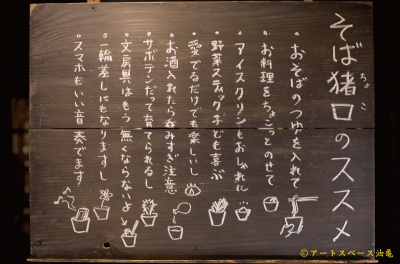 そば猪口のススメ
ちょこ
・おそばのつゆを入れて
・お料理をちょこっとのせて
・アイスクリンもおしゃれに
・野菜スティック子ども喜ぶ
・愛でるだけでも楽しいし
・お酒入れたら呑みすぎ注意
・サボテンだって育てられるし
・文房具はもう無くならないよ
・一輪差しにもなりますし
・スマホもいい音奏でます
©アートスペース油亀